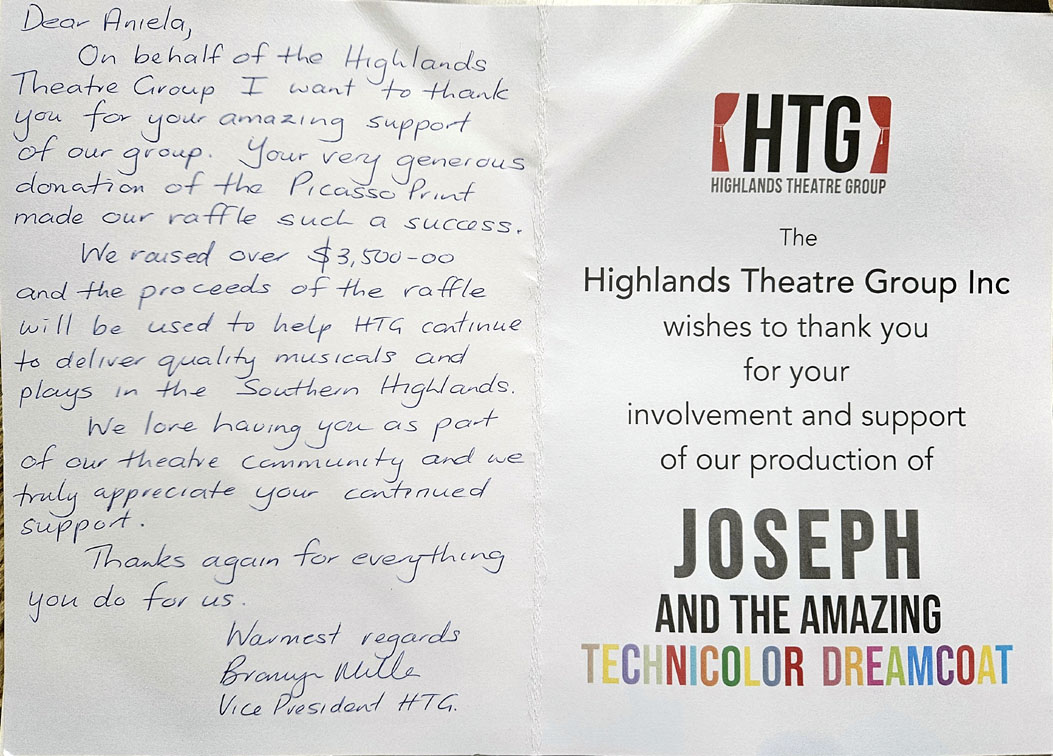 Dear Aniela,
On behalf of the Highlands
Theatre Group I want to thank
you for your amazing support
of our group. Your very generous
donation of the Picasso Print
made our raffle such a success.
We raised over $3,500-00
and the proceeds of the raffle
will be used to help HTG continue
to deliver quality musicals and
plays in the Southern Highlands.
We love having you as part
of our theatre community and we
truly appreciate your continued
support.
Thanks again for everything
you do for us.
Warmest regards
Vice President HTG.
HTG
HIGHLANDS THEATRE GROUP
The
Highlands Theatre Group Inc
wishes to thank you
for your
involvement and support
of our production of
JOSEPH
AND THE AMAZING
TECHNICOLOR DREAMCOAT